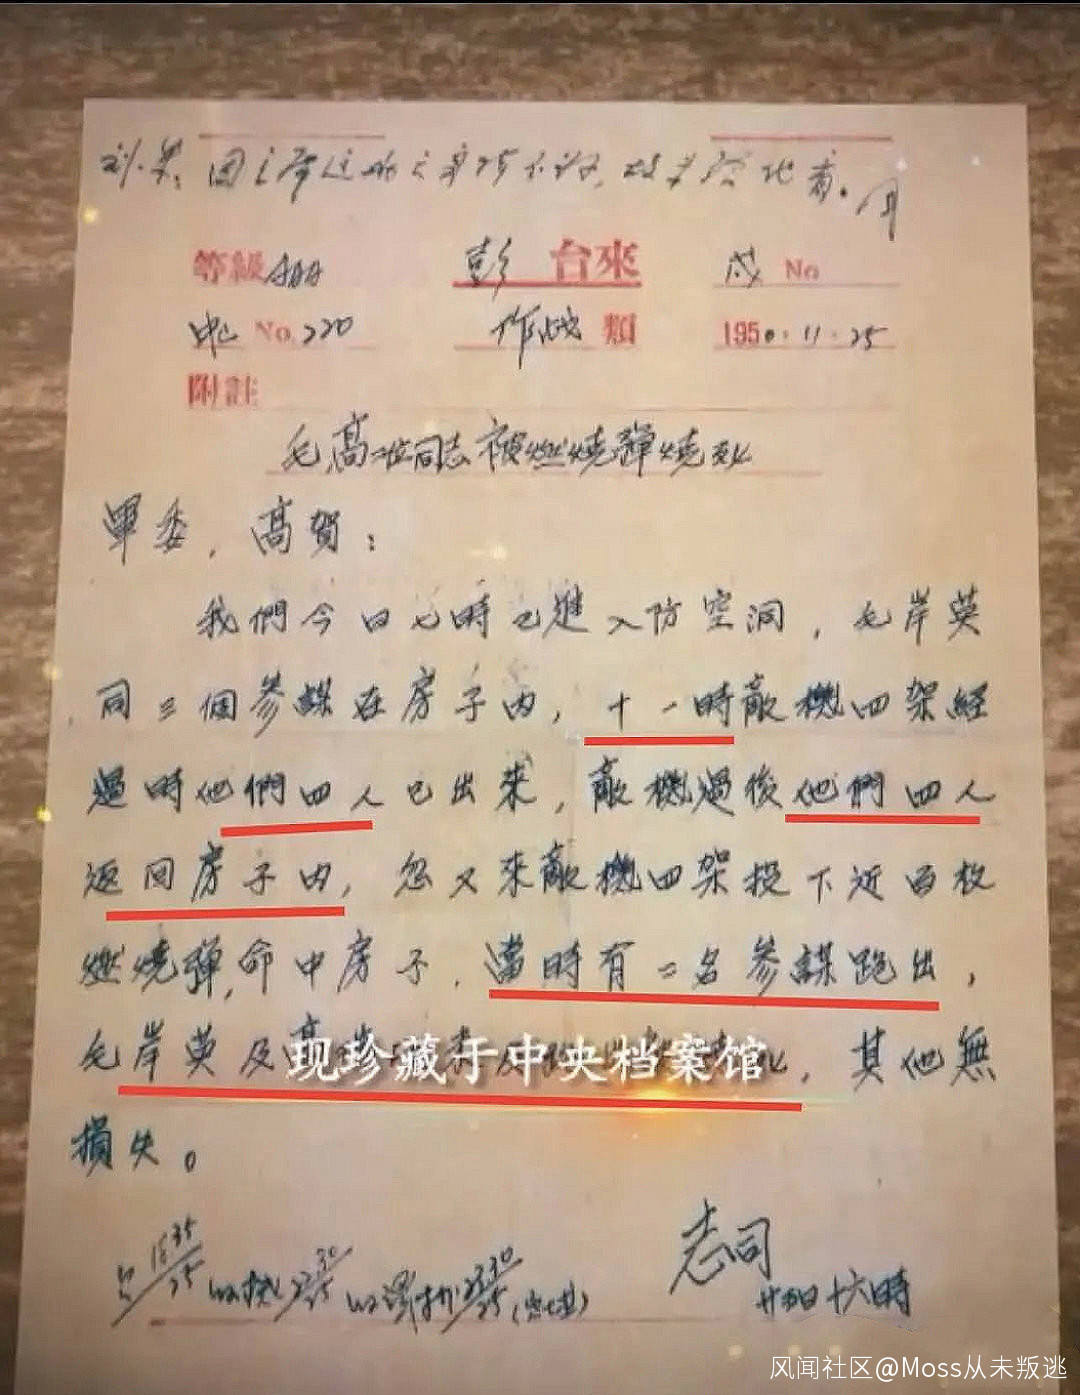 刘、
等級AAA 彭台來 戌 No
No.220 作战類 1950.11.25
附註
毛、高二位同志被燃燒彈燒死
軍委，高賀：
我們今日七時已進入防空洞，毛岸英
同三個參謀在房子內，十一時敵機四架經
過時他們四人已出來，敵機過後他們四人
返回房子內，忽又來敵機四架投下近百枚
燃燒彈，命中房子，當時有二名參謀跑出，
毛岸英及高 其他無
现珍藏于中央档案馆
損失。
志司
廿五日十六時
风闻社区@Moss从未叛逃